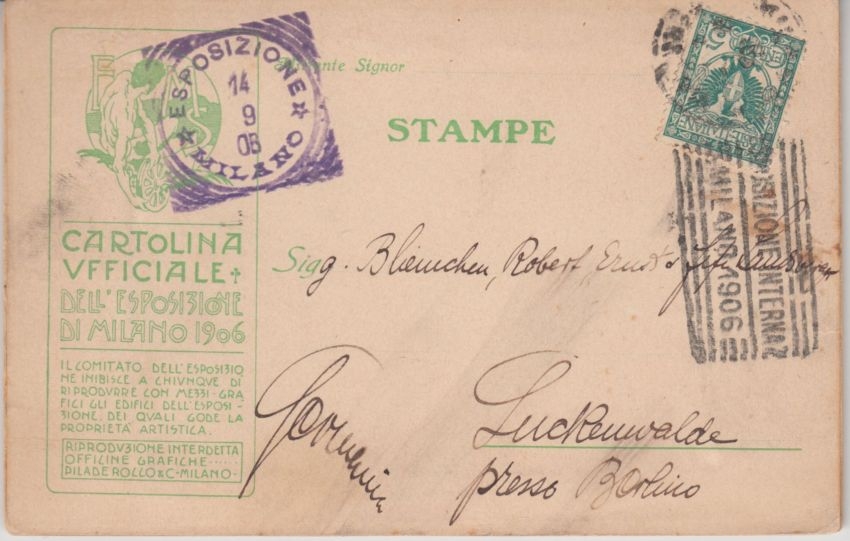 ESPOSIZIONE
14
9
06
MILANO
Signor
STAMPE
CARTOLINA
VFFICIALE
DELL'ESPOSIZIONE
DI MILANO 1906
IL COMITATO DELL'ESPOSIZIO
NE INIBISCE A CHIVNQVE DI
RIPRODVRRE CON MEZZI-GRA
FICI GLI EDIFICI DELL'ESPOSI-
ZIONE, DEI QVALI GODE LA
PROPRIETÀ ARTISTICA.
RIPRODVZIONE INTERDETTA
OFFICINE GRAFICHE
PILADE ROCCO & C-MILANO-
Sigg. Blümchen, Robert, Ernst
Luckenwalde
presso Berlino
Germania
ESPOSIZIONE INTERNAZ
MILANO 1906